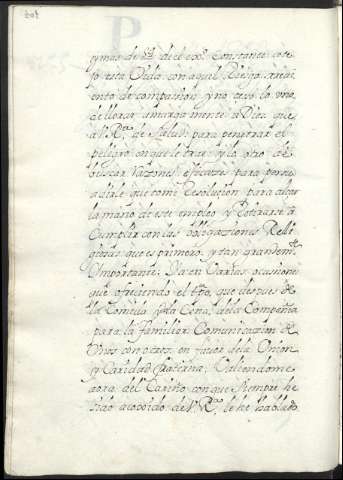 y mas de
esta Vida con aquel Riesgo
de compasion y no cesó lo uno
de llorar amargamente a Dios que
a V. R.ma de Salud para penetrar el
peligro en que le trae y lo otro de
buscar razones eficazes para persu
adirle que tome Resolucion para alçar
la mano de este empleo y Retirarse a
Cumplir con las obligaciones Reli
giosas que es primero, y tan grandem.te
Importante; Ya en Varias ocasiones
que ofreciendo el tpo, que despues de
la Comida y la Cena, da la Compañia
para la familiar Comunicacion de
Unos con otros en favor de la Union
y Caridad fraterna; Valiendome
aora del Cariño con que Siempre he
sido acogido de V. R.ma le he hablado